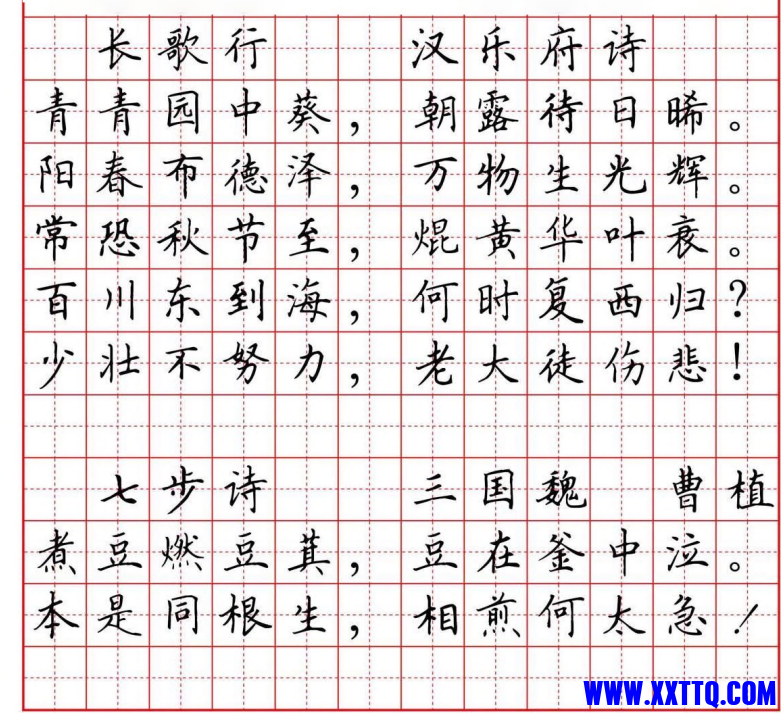 长歌行 汉乐府诗
青青园中葵，朝露待日晞。
阳春布德泽，万物生光辉。
常恐秋节至，焜黄华叶衰。
百川东到海，何时复西归？
少壮不努力，老大徒伤悲！
七步诗 三国魏 曹植
煮豆燃豆萁，豆在釜中泣。
本是同根生，相煎何太急！
WWW.XXTTQ.COM